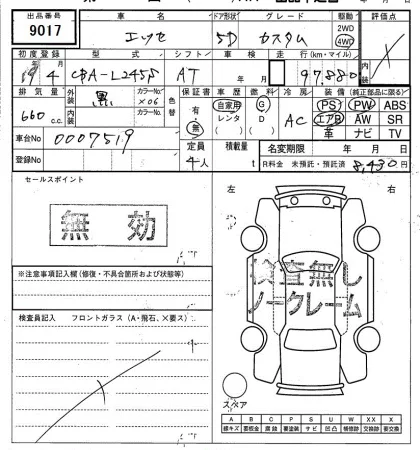 出品番号 車名 ドア形状 グレード 駆動 評価点
9017 エッセ 5D カスタム 2WD 4WD
初度登録 型式 シフト 車検 走行(km・マイル) 内装
19 4 CBA-L245S AT 年 月 97,880
排気量 外装 黒 カラーNo. X06 色替 保証書 車歴 燃料 冷房 装備(純正部品に限る)
660 c.c. 内装 カラーNo. 有・無 自家用 レンタ G D AC PS PW ABS
エアB AW SR
革 ナビ TV
車台No 0007519 定員 積載量 名変期限 年 月 日
登録No 4人 t R料金 未預託・預託済 8,430円
セールスポイント 左 右
無効
※注意事項記入欄(修復・不具合箇所および状態等)
検査無し
ノークレーム
検査員記入 フロントガラス(A・飛石、X要ス)
スペア
A B C P S U W X XX
線キズ 要板金 腐蝕 要塗装 サビ 凹凸 補修跡 要交換 交換跡